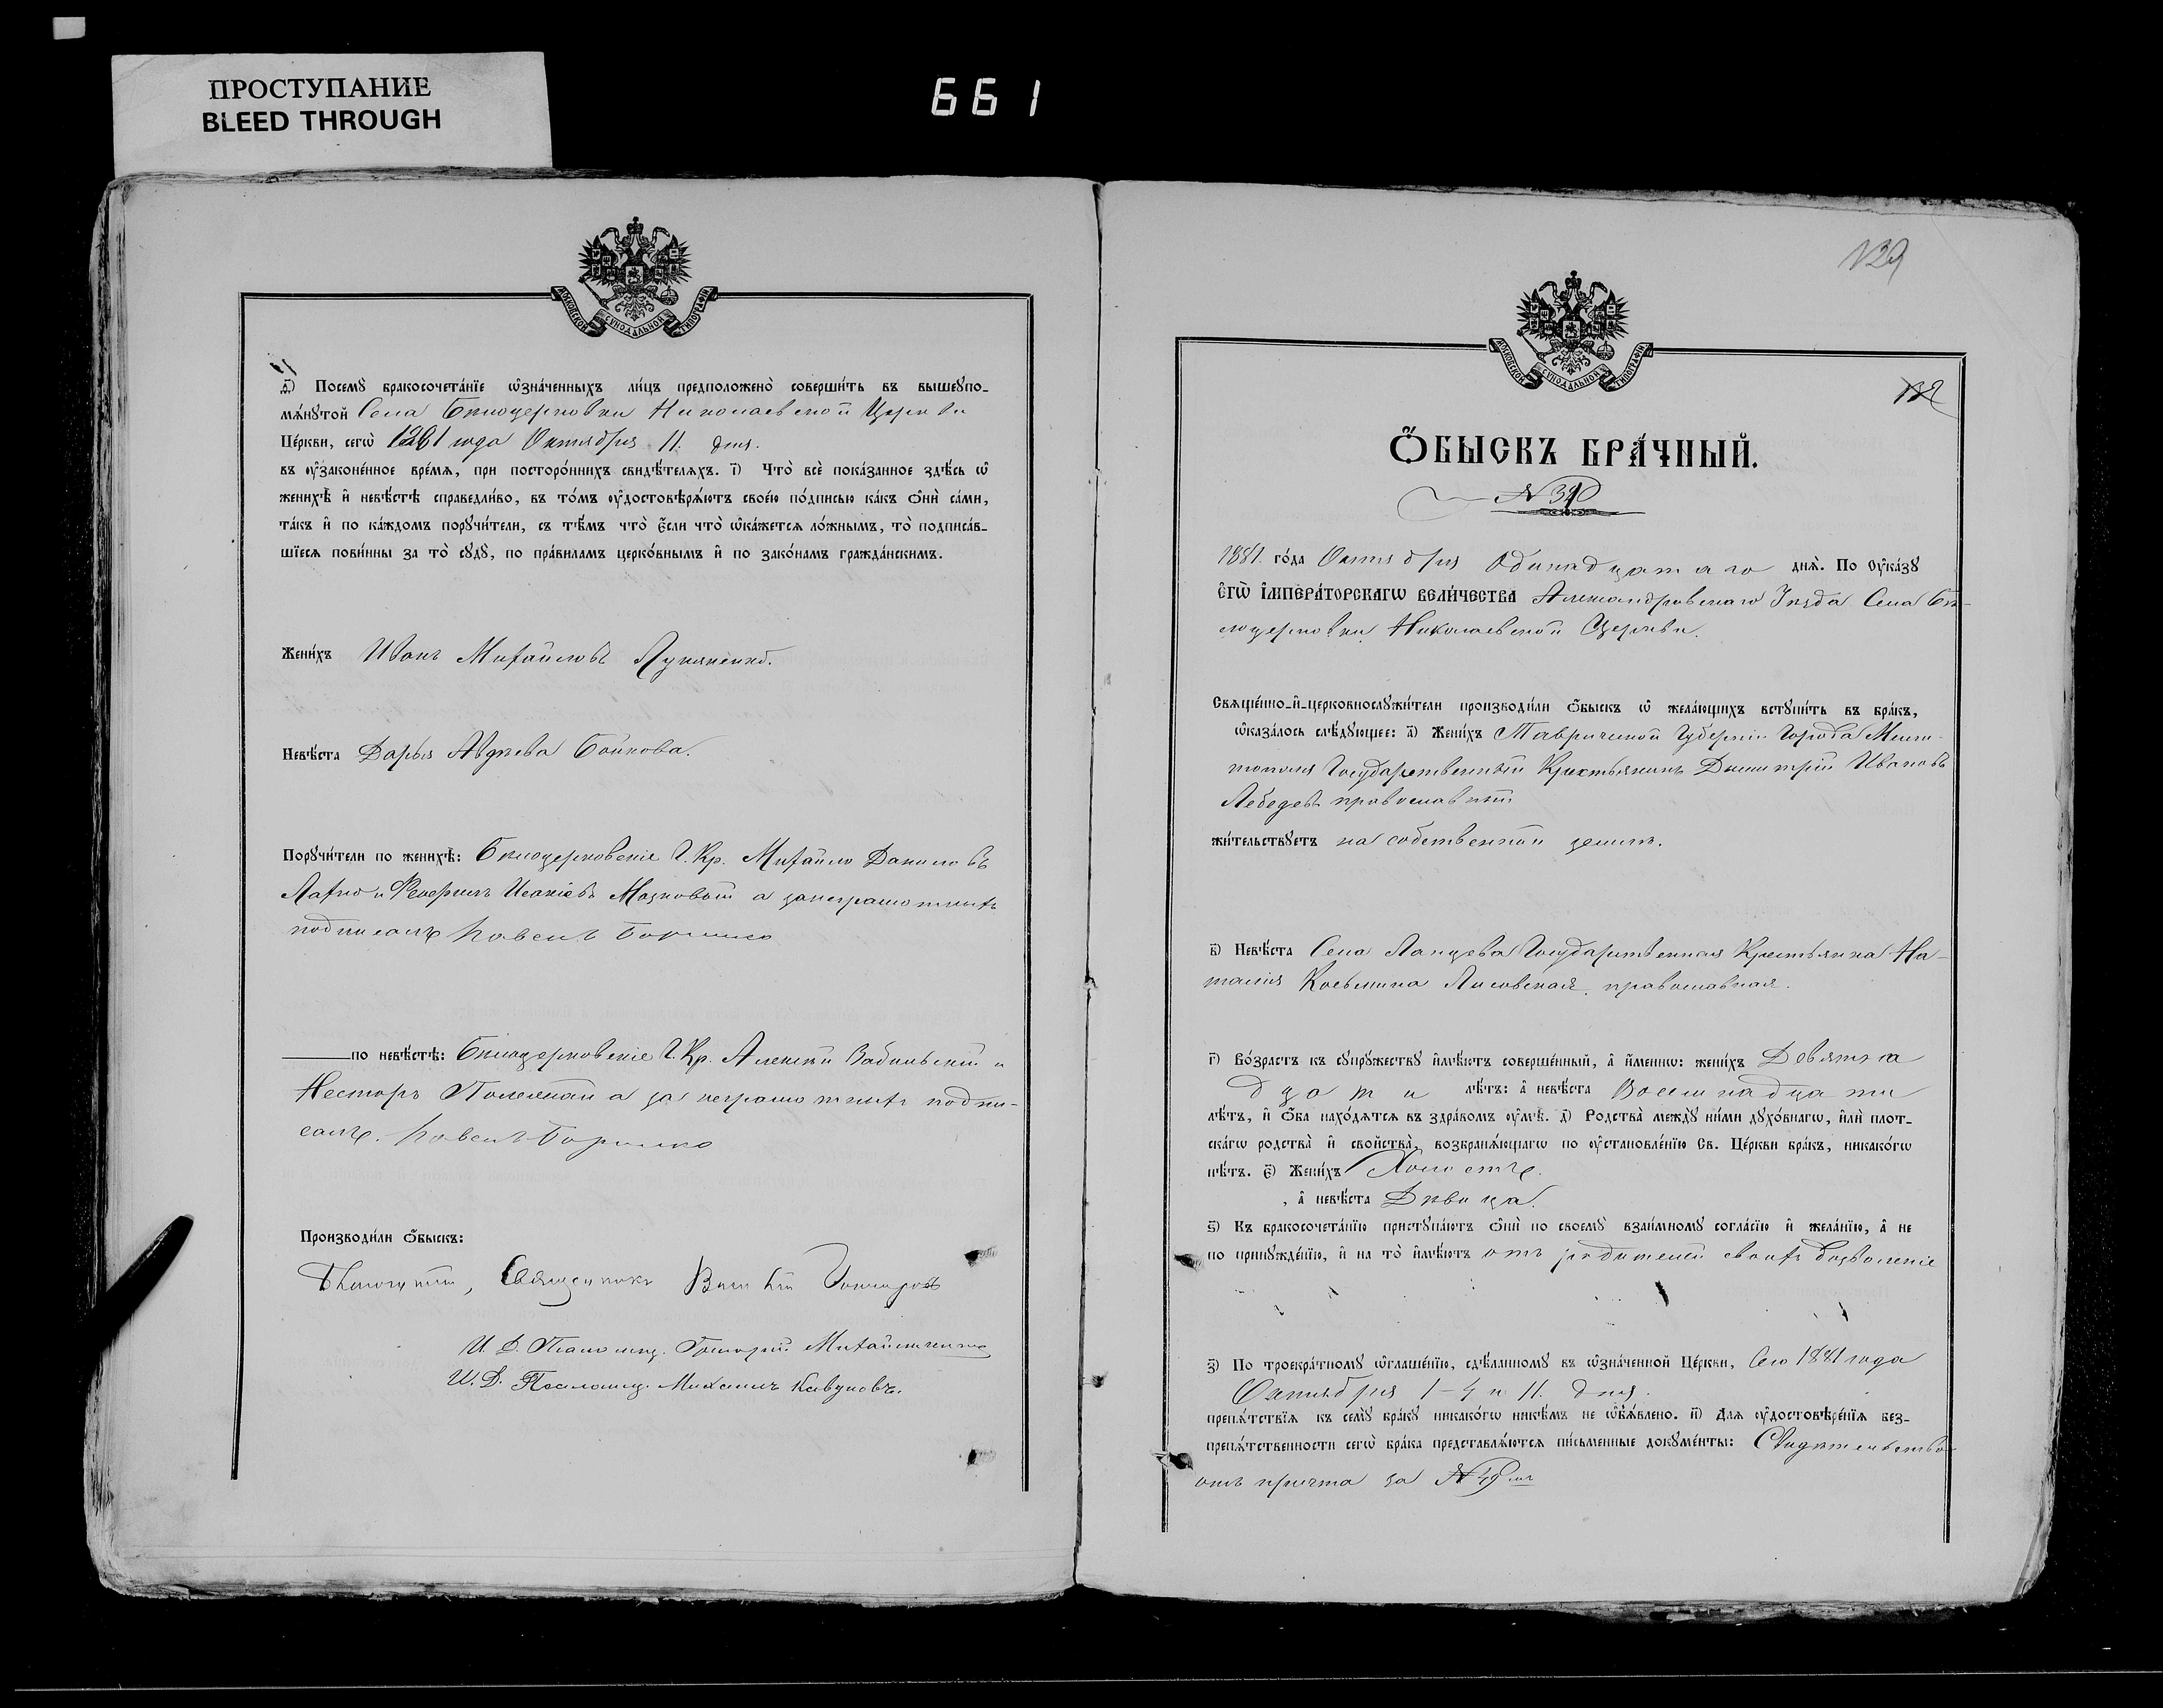 ПРОСТУПАНИЕ
BLEED THROUGH
661
МОСКОВСКОЙ СѴНОДАЛЬНОЙ ТИПОГРАФІИ
ѳ҃) Посемꙋ бракосочета́нїе ѡ҆зна́ченныхъ ли́цъ предположено̀ соверши́ть въ вышеꙋпо-
мѧ́нꙋтой Села Бѣлоцерковки Николаевской Церкви
Це́ркви, сегѡ̀ 1881 года Октября 11. дня.
въ ᲂу҆зако́ненное вре́мѧ, при посторо́ннихъ свидѣ́телѧхъ. і҃) Что̀ всѐ пока́занное здѣ́сь ѡ҆
женихѣ̀ и҆ невѣ́стѣ справедли́во, въ то́мъ ᲂу҆достовѣрѧ́ютъ свое́ю по́дписью ка́къ ѻ҆нѝ са́ми,
та́къ и҆ по ка́ждомъ порꙋчи́тели, съ тѣ́мъ что̀ є҆́сли что̀ ѡ҆ка́жетсѧ ло́жнымъ, то̀ подписа́в-
шїесѧ пови́нны за то̀ сꙋдꙋ̀, по пра́виламъ церко́внымъ и҆ по зако́намъ гражда́нскимъ.
Жени́хъ Иванъ Михайловъ Лукяненко.
Невѣ́ста Дарья Авдѣева Бойкова.
Порꙋчи́тели по женихѣ̀: Бѣлоцерковскіе Г. Кр. Михайло Даниловъ
Лахно и Феофилъ Исакіевъ Мазновый а за неграмотныхъ
подписалъ Павелъ
по невѣ́стѣ: Бѣлоцерковскіе Г. Кр. Алексѣй и
Несторъ а за неграмотныхъ подпи-
салъ. Павелъ
Производи́ли ѻ҆́быскъ:
Священникъ
И. Д. Псаломщ. Григорій Михайличенко
И. Д. Псаломщ. Михаилъ Кавуновъ.
129
ѺБЫСКЪ БРА́ЧНЫЙ.
1881. го́да Октября Одинадцатаго днѧ̀. По Оу҆ка́зꙋ
Є҆гѡ̀ І҆мпера́торскагѡ вели́чества Александровскаго Уѣзда Села Бѣ-
лоцерковки Николаевской Церкви.
Свѧще́нно-и҆-церковнослꙋжи́тели производи́ли ѻ҆́быскъ ѡ҆ жела́ющихъ встꙋпи́ть въ бра́къ,
ѡ҆каза́лось слѣ́дꙋющее: а҃) Жени́хъ Таврической Губерніи Города Мели-
тополя Государственный Крестьянинъ Дмитрій Ивановъ
Лебедевъ православный
жи́тельствꙋетъ на собственной землѣ.
в҃) Невѣ́ста Села Ланцева Государственная Крестьянка На-
талія Косьмина Лисовская. православная.
г҃) Во́зрастъ къ сꙋпрꙋ́жествꙋ и҆мѣ́ютъ соверше́нный, а҆ и҆́меннѡ: жени́хъ Девятна
дцати лѣ́тъ: а҆ невѣ́ста Восемнадцати
лѣ́тъ, и҆ ѻ҆́ба нахо́дѧтсѧ въ здра́вомъ ᲂу҆мѣ̀. д҃) Родства̀ междꙋ̀ ни́ми дꙋхо́внагѡ, и҆лѝ плот-
ска́гѡ родства̀ и҆ свойства̀, возбранѧ́ющагѡ по ᲂу҆становле́нїю Св. Це́ркви бра́къ, никако́гѡ
нѣ́тъ. є҃) Жени́хъ Холостъ.
, а҆ невѣ́ста Дѣвица.
ѕ҃) Къ бракосочета́нїю пристꙋпа́ютъ ѻ҆нѝ по своемꙋ̀ взаи́мномꙋ согла́сїю и҆ жела́нїю, а҆ не
по принꙋжде́нїю, и҆ на то̀ и҆мѣ́ютъ отъ родителей своихъ дозволеніе
з҃) По троекра́тномꙋ ѡ҆глаше́нїю, сдѣ́ланномꙋ въ ѡ҆зна́ченной Це́ркви, Сего 1881 года
Октября 1-4 и 11. дня.
препѧ́тствїѧ къ семꙋ̀ бра́кꙋ никако́гѡ никѣ́мъ не ѡ҆б̾ѧ́влено. и҃) Длѧ ᲂу҆достовѣре́нїѧ без-
препѧ́тственности сегѡ̀ бра́ка представлѧ́ютсѧ пи́сьменные докꙋме́нты: Свидѣтельство
отъ причта за